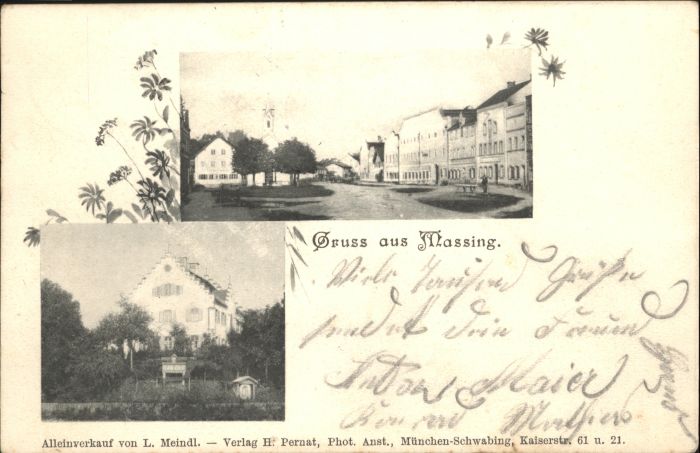 Gruss aus Massing.
Viele tausend Grüße
sendet dein
Anton Maier
Konrad
Alleinverkauf von L. Meindl. — Verlag H. Pernat, Phot. Anst., München-Schwabing, Kaiserstr. 61 u. 21.